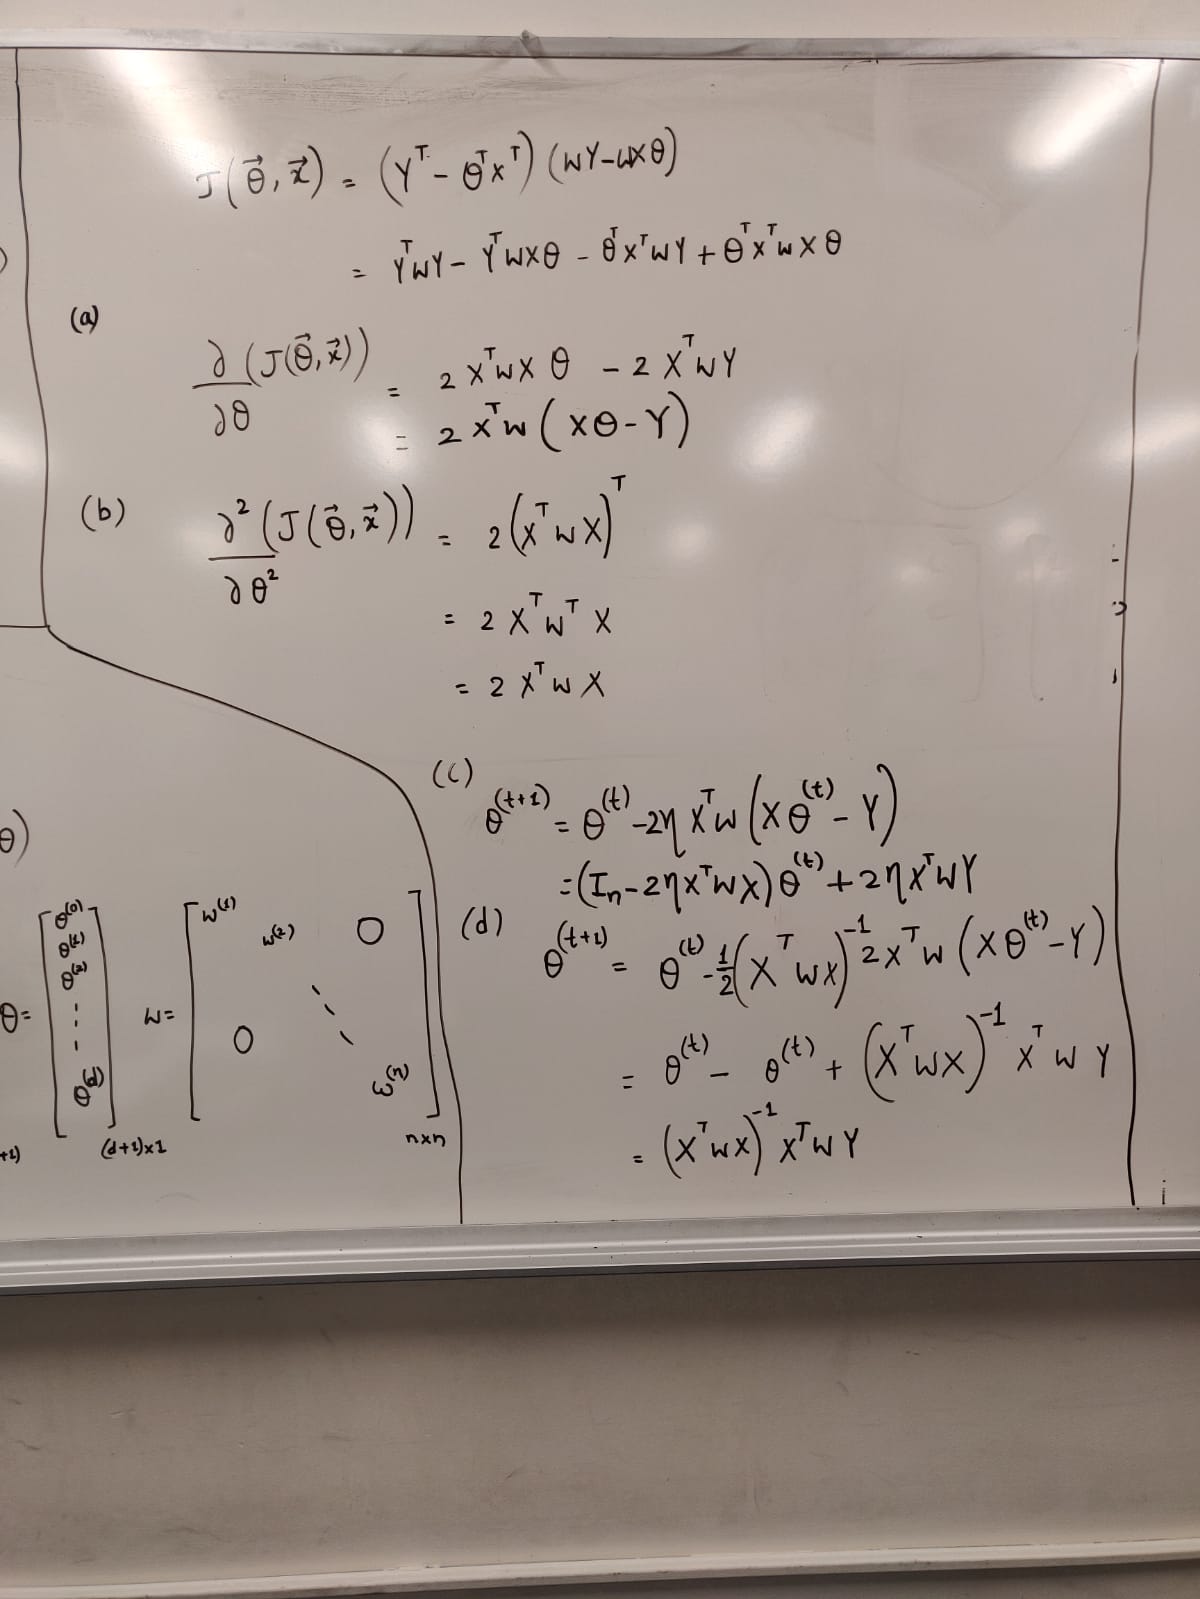 J(θ⃗, x⃗) = (Yᵀ - θᵀxᵀ) (WY-WXθ)
= YᵀWY - YᵀWXθ - θᵀXᵀWY + θᵀXᵀWXθ
(a)
∂(J(θ⃗, x⃗))/∂θ = 2XᵀWXθ - 2XᵀWY
= 2XᵀW(Xθ-Y)
(b)
∂²(J(θ⃗, x⃗))/∂θ² = 2(XᵀWX)ᵀ
= 2XᵀWᵀX
= 2XᵀWX
(c)
θ^(t+1) = θ^(t) - 2η XᵀW(Xθ^(t) - Y)
= (Iₙ - 2ηXᵀWX)θ^(t) + 2ηXᵀWY
(d)
θ^(t+1) = θ^(t) - 1/2 (XᵀWX)^-1 2XᵀW(Xθ^(t) - Y)
= θ^(t) - θ^(t) + (XᵀWX)^-1 XᵀWY
= (XᵀWX)^-1 XᵀWY
θ)
θ= [θ^(0) θ^(1) θ^(2) ⋮ θ^(d)] (d+1)x1
W= [w^(1) w^(2) ⋱ w^(n)] 0 0 nxn
+1)